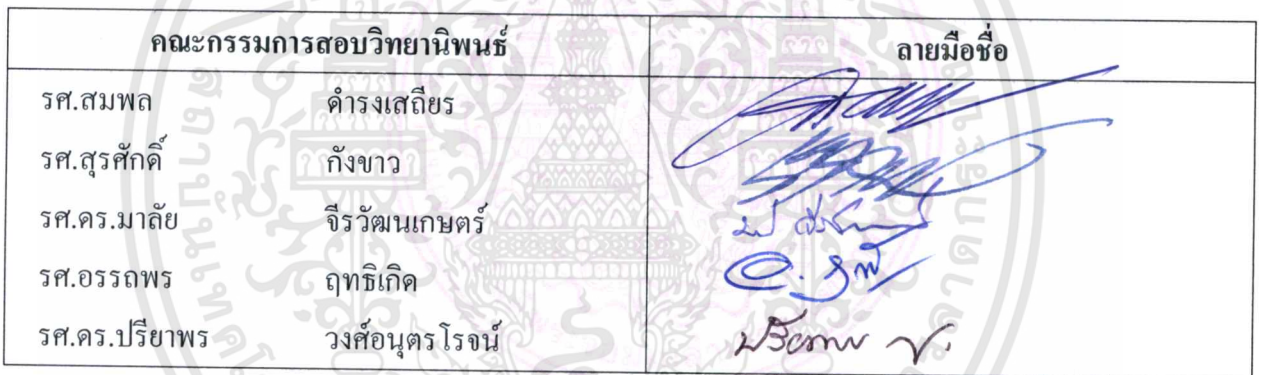 คณะกรรมการสอบวิทยานิพนธ์ ลายมือชื่อ
รศ.สมพล ดำรงเสถียร
รศ.สุรศักดิ์ กังขาว
รศ.ดร.มาลัย จีรวัฒนเกษตร์
รศ.อรรถพร ฤทธิเกิด
รศ.ดร.ปรียาพร วงศ์อนุตรโรจน์